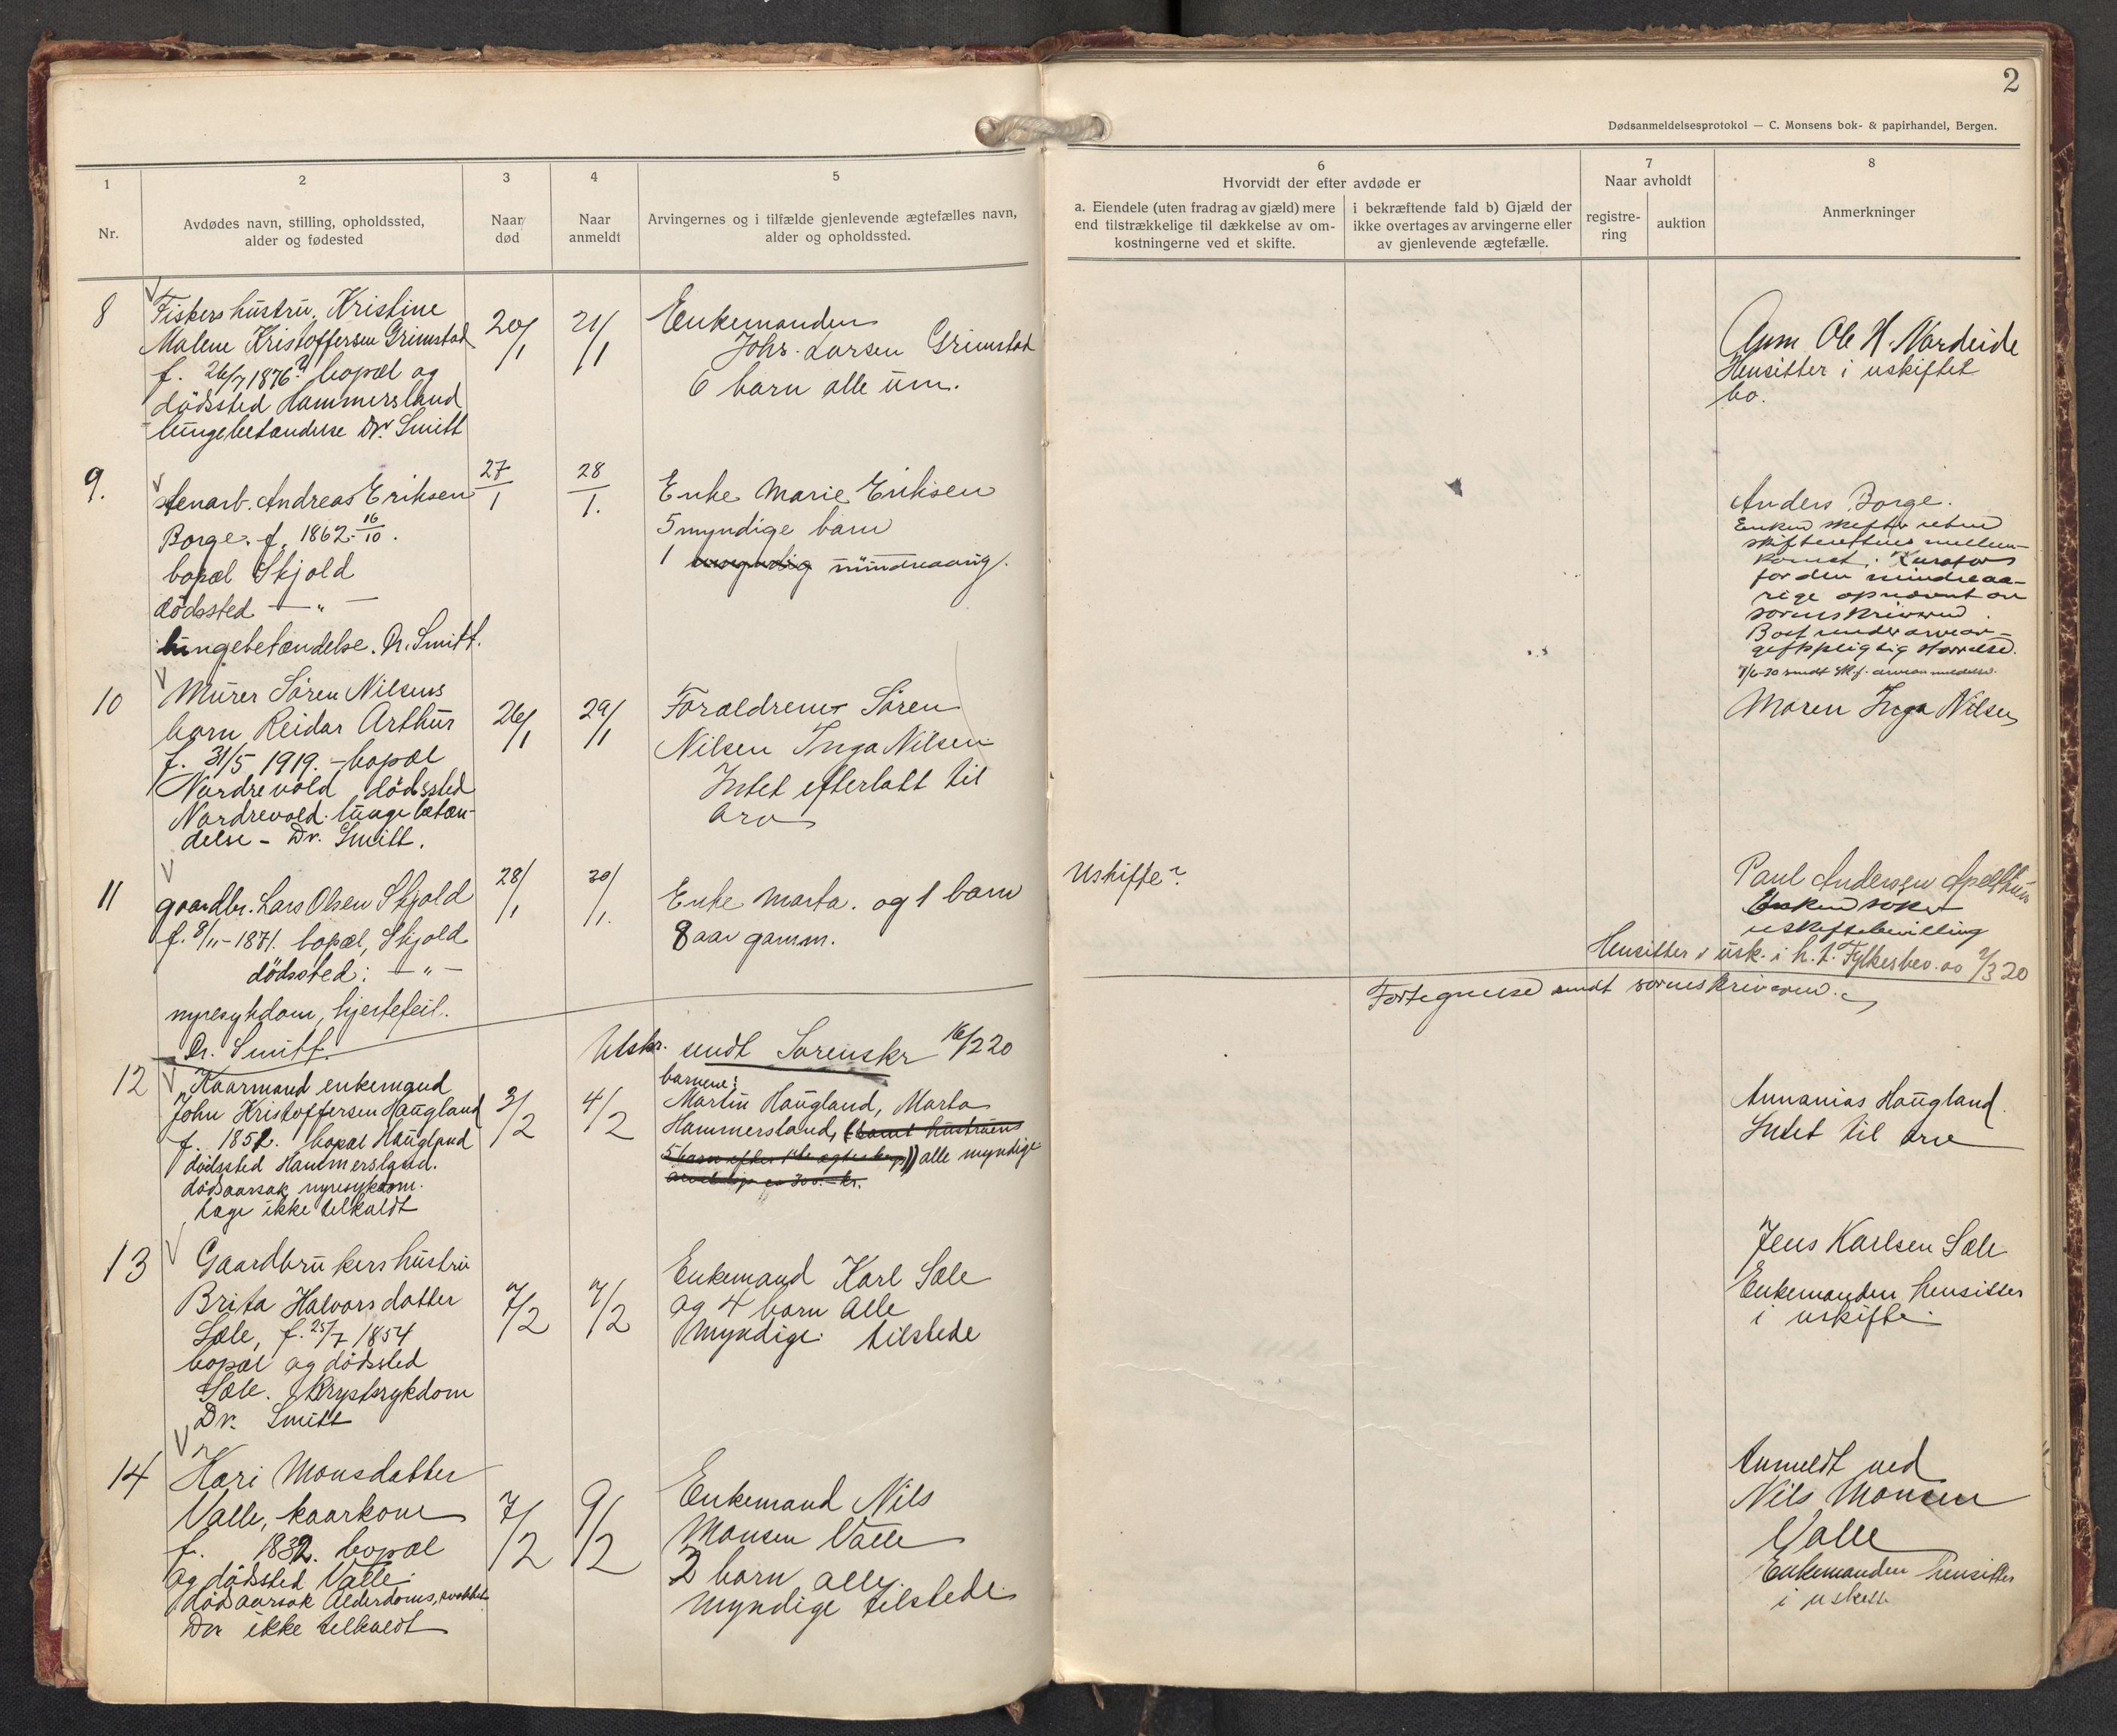 2
Dødsanmeldelsesprotokol — C. Monsens bok- & papirhandel, Bergen.
1
Nr.
2
Avdødes navn, stilling, opholdssted,
alder og fødested
3
Naar
død
4
Naar
anmeldt
5
Arvingernes og i tilfælde gjenlevende ægtefælles navn,
alder og opholdssted.
6
Hvorvidt der efter avdøde er
a. Eiendele (uten fradrag av gjæld) mere
end tilstrækkelige til dækkelse av om-
kostningerne ved et skifte.
i bekræftende fald b) Gjæld der
ikke overtages av arvingerne eller
av gjenlevende ægtefælle.
7
Naar avholdt
registre-
ring
auktion
8
Anmerkninger
8
Fiskers hustru, Kristine
Malene Kristoffersen Grimstad
f. 26/7 1876 bopæl og
dödssted Hammersland
lungebetændelse Dr. Smitt
20/1
21/1
Enkemanden
Johs. Larsen Grimstad
6 barn alle um.
Anm Ole H. Nordeide
Hensitter i uskiftet
bo.
9.
stenarb. Andreas Eriksen
Borge. f. 1862 16/10.
bopæl Skjold
dödssted — " —
lungebetændelse. Dr. Smitt.
27/1
28/1.
Enke Marie Eriksen
5 myndige barn
1 mindreaarig.
Anders Borge.
Enken skifter uten
skifterettens mellem-
komst. Kurator
for den mindreaa-
rige opnævnt av
sorenskriveren.
Boet under arveav-
giftspligtig størrelse.
10
Murer Sören Nilsens
barn Reidar Arthur
f. 31/5 1919. - bopæl
Nordrevold dödssted
Nordrevold. lungebetæn-
delse - Dr. Smitt.
26/1
29/1
Forældrene Sören
Nilsen Inga Nilsen
Intet efterlatt til
arv
Moren Inga Nilsen
11
gaardbr. Lars Olsen Skjold
f. 8/11-1871. bopæl, Skjold
dödssted: — " —
nyresykdom, hjertefeil.
Dr. Smitt.
28/1
30/1.
Enke Marta. og 1 barn
8 aar gamm.
Uskifte?
Paul Andersen Apeltun
Enken søker
uskiftebevilling
Hensitter i usk. i h. t. Fylkesbev. av 2/3 20
Fortegnelse sendt sorenskriveren.
Utskr. sendt Sorenskr 16/2 20
12
Kaarmand enkemand
John Kristoffersen Haugland
f. 1852. bopæl Haugland
dödssted Hammersland.
dödsaarsak nyresykdom.
læge ikke tilkaldt
3/2
4/2
barnene:
Martin Haugland, Marta
Hammersland, (samt hustruens
5 barn efter 1ste ægteskap)) alle myndige
Annanias Haugland.
Intet til arv
13
Gaardbrukers hustru
Brita Halvorsdatter
Sæle, f. 25/7 1854
bopæl og dödssted
Sæle. Brystsykdom
Dr. Smitt
7/2
7/2
Enkemand Karl Sæle
og 4 barn alle
Myndige. tilstede
Jens Karlsen Sæle
Enkemanden hensitter
i uskifte.
14
Kari Monsdatter
Valle, kaarkone
f. 1832. bopæl
og dödssted Valle.
dödsaarsak Alderdoms,svakhet
Dr. ikke tilkaldt
7/2
9/2
Enkemand Nils
Monsen Valle
2 barn alle
Myndige tilstede
Anmeldt ved
Nils Monsen
Valle
Enkemanden hensitter
i uskifte